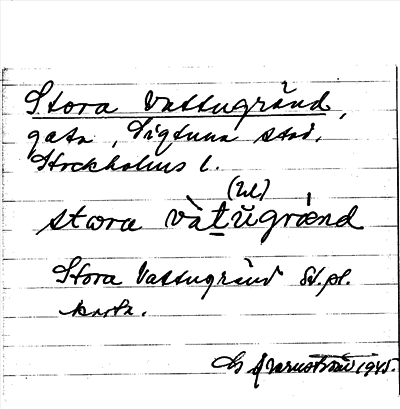 Stora Vattugränd,
gata, Sigtuna stad.
Stockholms l.
(ul)
stωra vàt̲ŭgrænd
Stora Vattugränd St.pl.
karta.
1945.